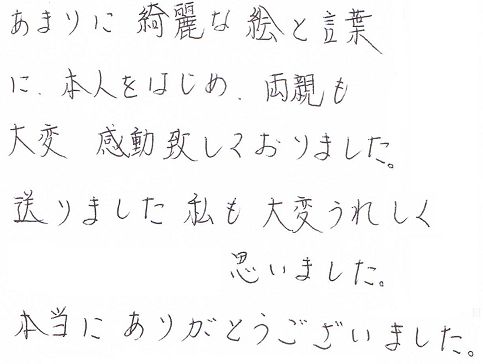 あまりに綺麗な絵と言葉
に、本人をはじめ、両親も
大変 感動致しておりました。
送りました私も大変うれしく
思いました。
本当にありがとうございました。